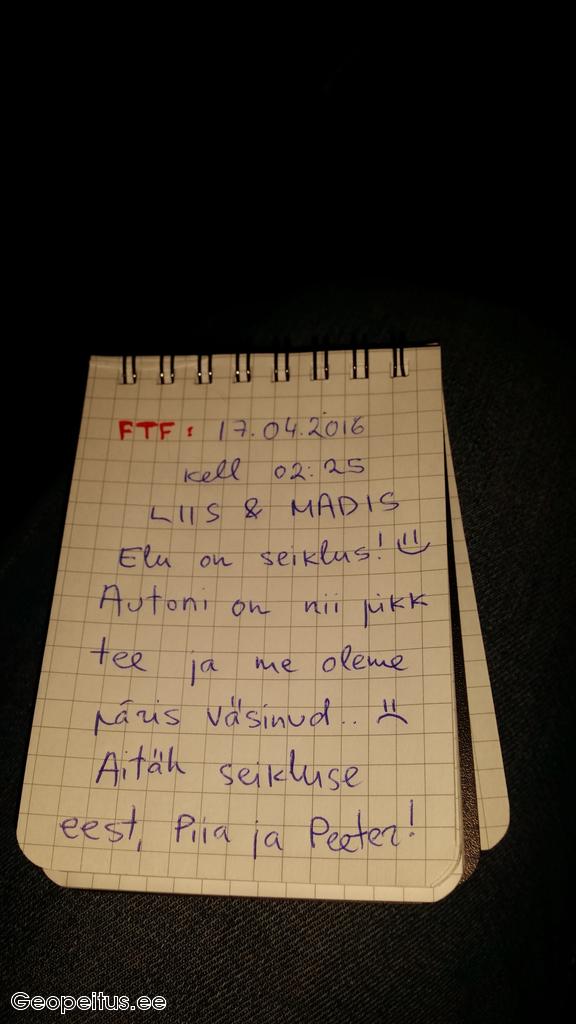 FTF: 17.04.2016
kell 02:25
LIIS & MADIS
Elu on seiklus!
Autoni on nii pikk
tee ja me oleme
päris väsinud..
Aitäh seikluse
eest, Piia ja Peeter!
Geopeitus.ee